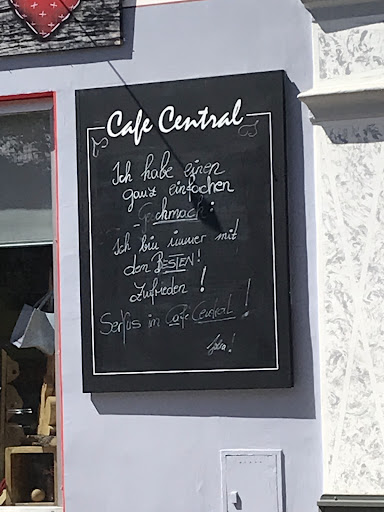 Cafe Central
Ich habe einen
ganz einfachen
Geschmack:
Ich bin immer mit
dem BESTEN!
Zufrieden!
Servus im Cafe Central!